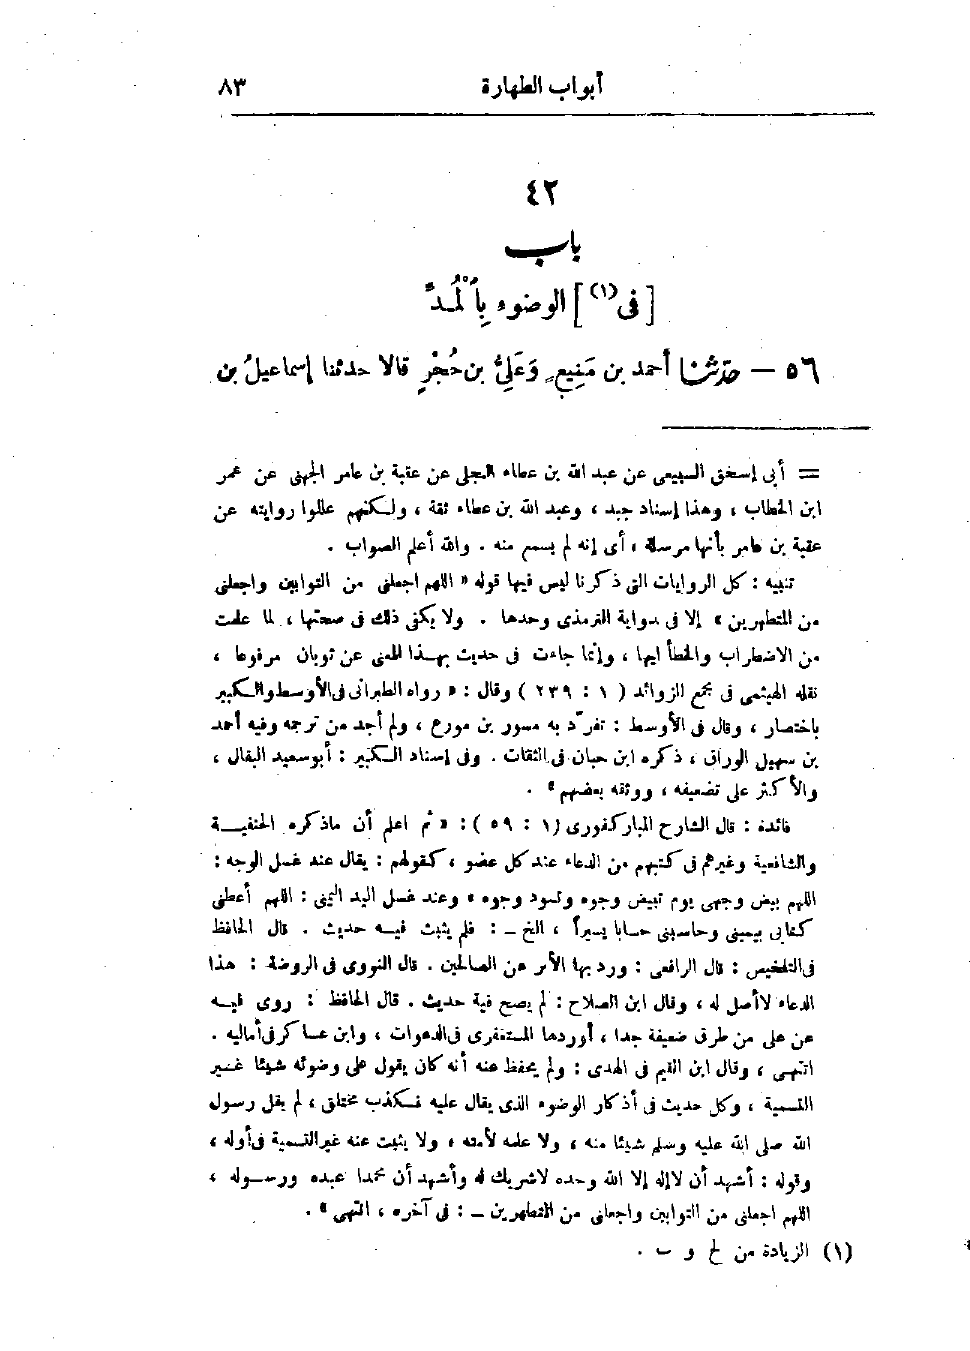 أبواب الطهارة ٨٣
٤٢
باب
[ فى (١) ] الوضوء بِالْمُدِّ
٥٦ — حدّثنا أحمد بن مَنِيعٍ وَعَلِىُّ بن حُجْرٍ قالا حدثنا إسماعيلُ بن
= أبى إسحق السبيعى عن عبد الله بن عطاء البجلى عن عقبة بن عامر الجهنى عن عمر
ابن الخطاب ، وهذا إسناد جيد ، وعبد الله بن عطاء ثقة ، ولكنهم عللوا روايته عن
عقبة بن عامر بأنها مرسلة ، أى إنه لم يسمع منه . والله أعلم الصواب .
تنبيه : كل الروايات التى ذكرنا ليس فيها قوله « اللهم اجعلنى من التوابين واجعلنى
من المتطهرين » إلا فى رواية الترمذى وحدها . ولا يكفى ذلك فى صحتها ، لما علمت
من الاضطراب والخطأ فيها ، وإنما جاءت فى حديث بهذا المعنى عن ثوبان مرفوعا ،
نقله الهيثمى فى مجمع الزوائد ( ١ : ٢٣٩ ) وقال : « رواه الطبرانى فى الأوسط والكبير
باختصار ، وقال فى الأوسط : تفرّد به مسور بن مورع ، ولم أجد من ترجمه وفيه أحمد
بن سهيل الوراق ، ذكره ابن حبان فى الثقات . وفى إسناد الكبير : أبو سعيد البقال ،
والأكثر على تضعيفه ، ووثقه بعضهم » .
فائدة : قال الشارح المباركفورى ( ١ : ٥٩ ) : « ثم اعلم أن ماذكره الحنفية
والشافعية وغيرهم فى كتبهم من الدعاء عند كل عضو ، كقولهم : يقال عند غسل الوجه :
اللهم بيض وجهى يوم تبيض وجوه وتسود وجوه » وعند غسل اليد اليمنى : اللهم أعطنى
كتابى بيمينى وحاسبنى حسابا يسيراً ، الخ — : فلم يثبت فيه حديث . قال الحافظ
فى التلخيص : قال الرافعى : ورد بها الأثر عن الصالحين . قال النووى فى الروضة : هذا
الدعاء لا أصل له ، وقال ابن الصلاح : لم يصح فية حديث . قال الحافظ : روى فيه
عن على من طرق ضعيفة جدا ، أوردها المستغفرى فى الدعوات ، وابن عساكر فى أماليه .
انتهى ، وقال ابن القيم فى الهدى : ولم يحفظ عنه أنه كان يقول على وضوئه شيئا غير
التسمية ، وكل حديث فى أذكار الوضوء الذى يقال عليه فكذب مختلق ، لم يقل رسول
الله صلى الله عليه وسلم شيئا منه ، ولا علمه لأمته ، ولا يثبت عنه غير التسمية فى أوله ،
وقوله : أشهد أن لا إله إلا الله وحده لا شريك له وأشهد أن محمدا عبده ورسوله ،
اللهم اجعلنى من التوابين واجعلنى من المتطهرين — : فى آخره ، انتهى » .
(١) الزيادة من ع و ب .